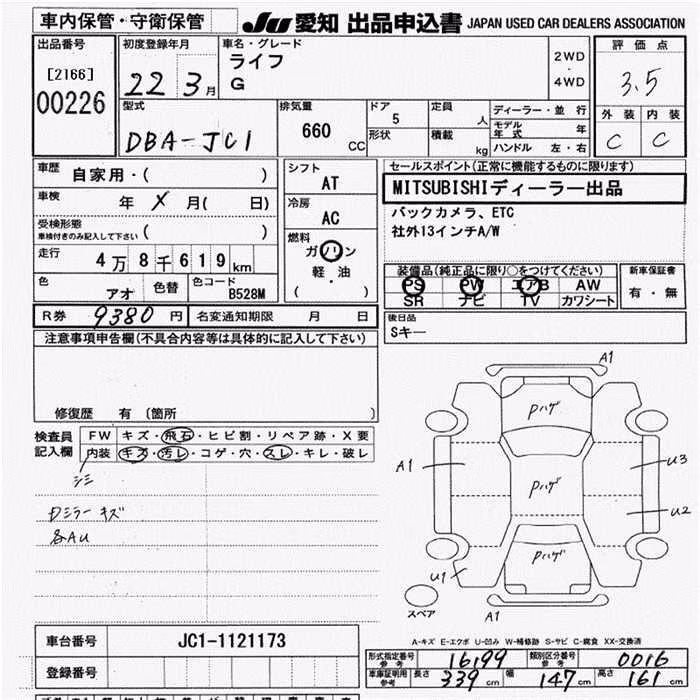 車内保管・守衛保管 JU 愛知 出品申込書 JAPAN USED CAR DEALERS ASSOCIATION
出品番号 初度登録年月 車名・グレード 評価点
[2166] 22 3月 ライフ 2WD・4WD 3.5
00226 G
外装 内装
C C
型式 排気量 ドア 定員 ディーラー・並行
DBA-JC1 660 CC 5 人 モデル年式 年
形状 積載 kg ハンドル 左・右
車歴 自家用・( ) シフト AT セールスポイント(正常に機能するものに限ります)
車検 年 X 月( 日) 冷房 AC MITSUBISHIディーラー出品
受検形態 バックカメラ、ETC
車検付きのみ記入して下さい ( ) 社外13インチA/W
走行 4万8千619km 燃料 ガソリン
軽・油
( )
装備品(純正品に限り○をつけてください) 新車保証書
PS PW エアB AW 有・無
SR ナビ TV カワシート
色 アオ 色替 色コード B528M
R券 9380円 名変通知期限 月 日 後日品
Sキー
注意事項申告欄(不具合内容等は具体的に記入して下さい)
修復歴 有 〔箇所 〕
検査員記入欄 FW キズ・飛石・ヒビ割・リペア跡・X要
内装 キズ・汚レ・コゲ・穴・スレ・キレ・破レ
シミ
Dミラー キズ
各AU
A1
Pハゲ
A1
U3
Pハゲ
U2
Pハゲ
U1
スペア
A1
A-キズ E-エクボ U-凹み W-補修跡 S-サビ C-腐食 XX-交換済
車台番号 JC1-1121173
登録番号
形式指定番号 参考 16199 類別区分番号 参考 0016
車庫証明用 参考 長さ 339cm 幅 147cm 高さ 161cm